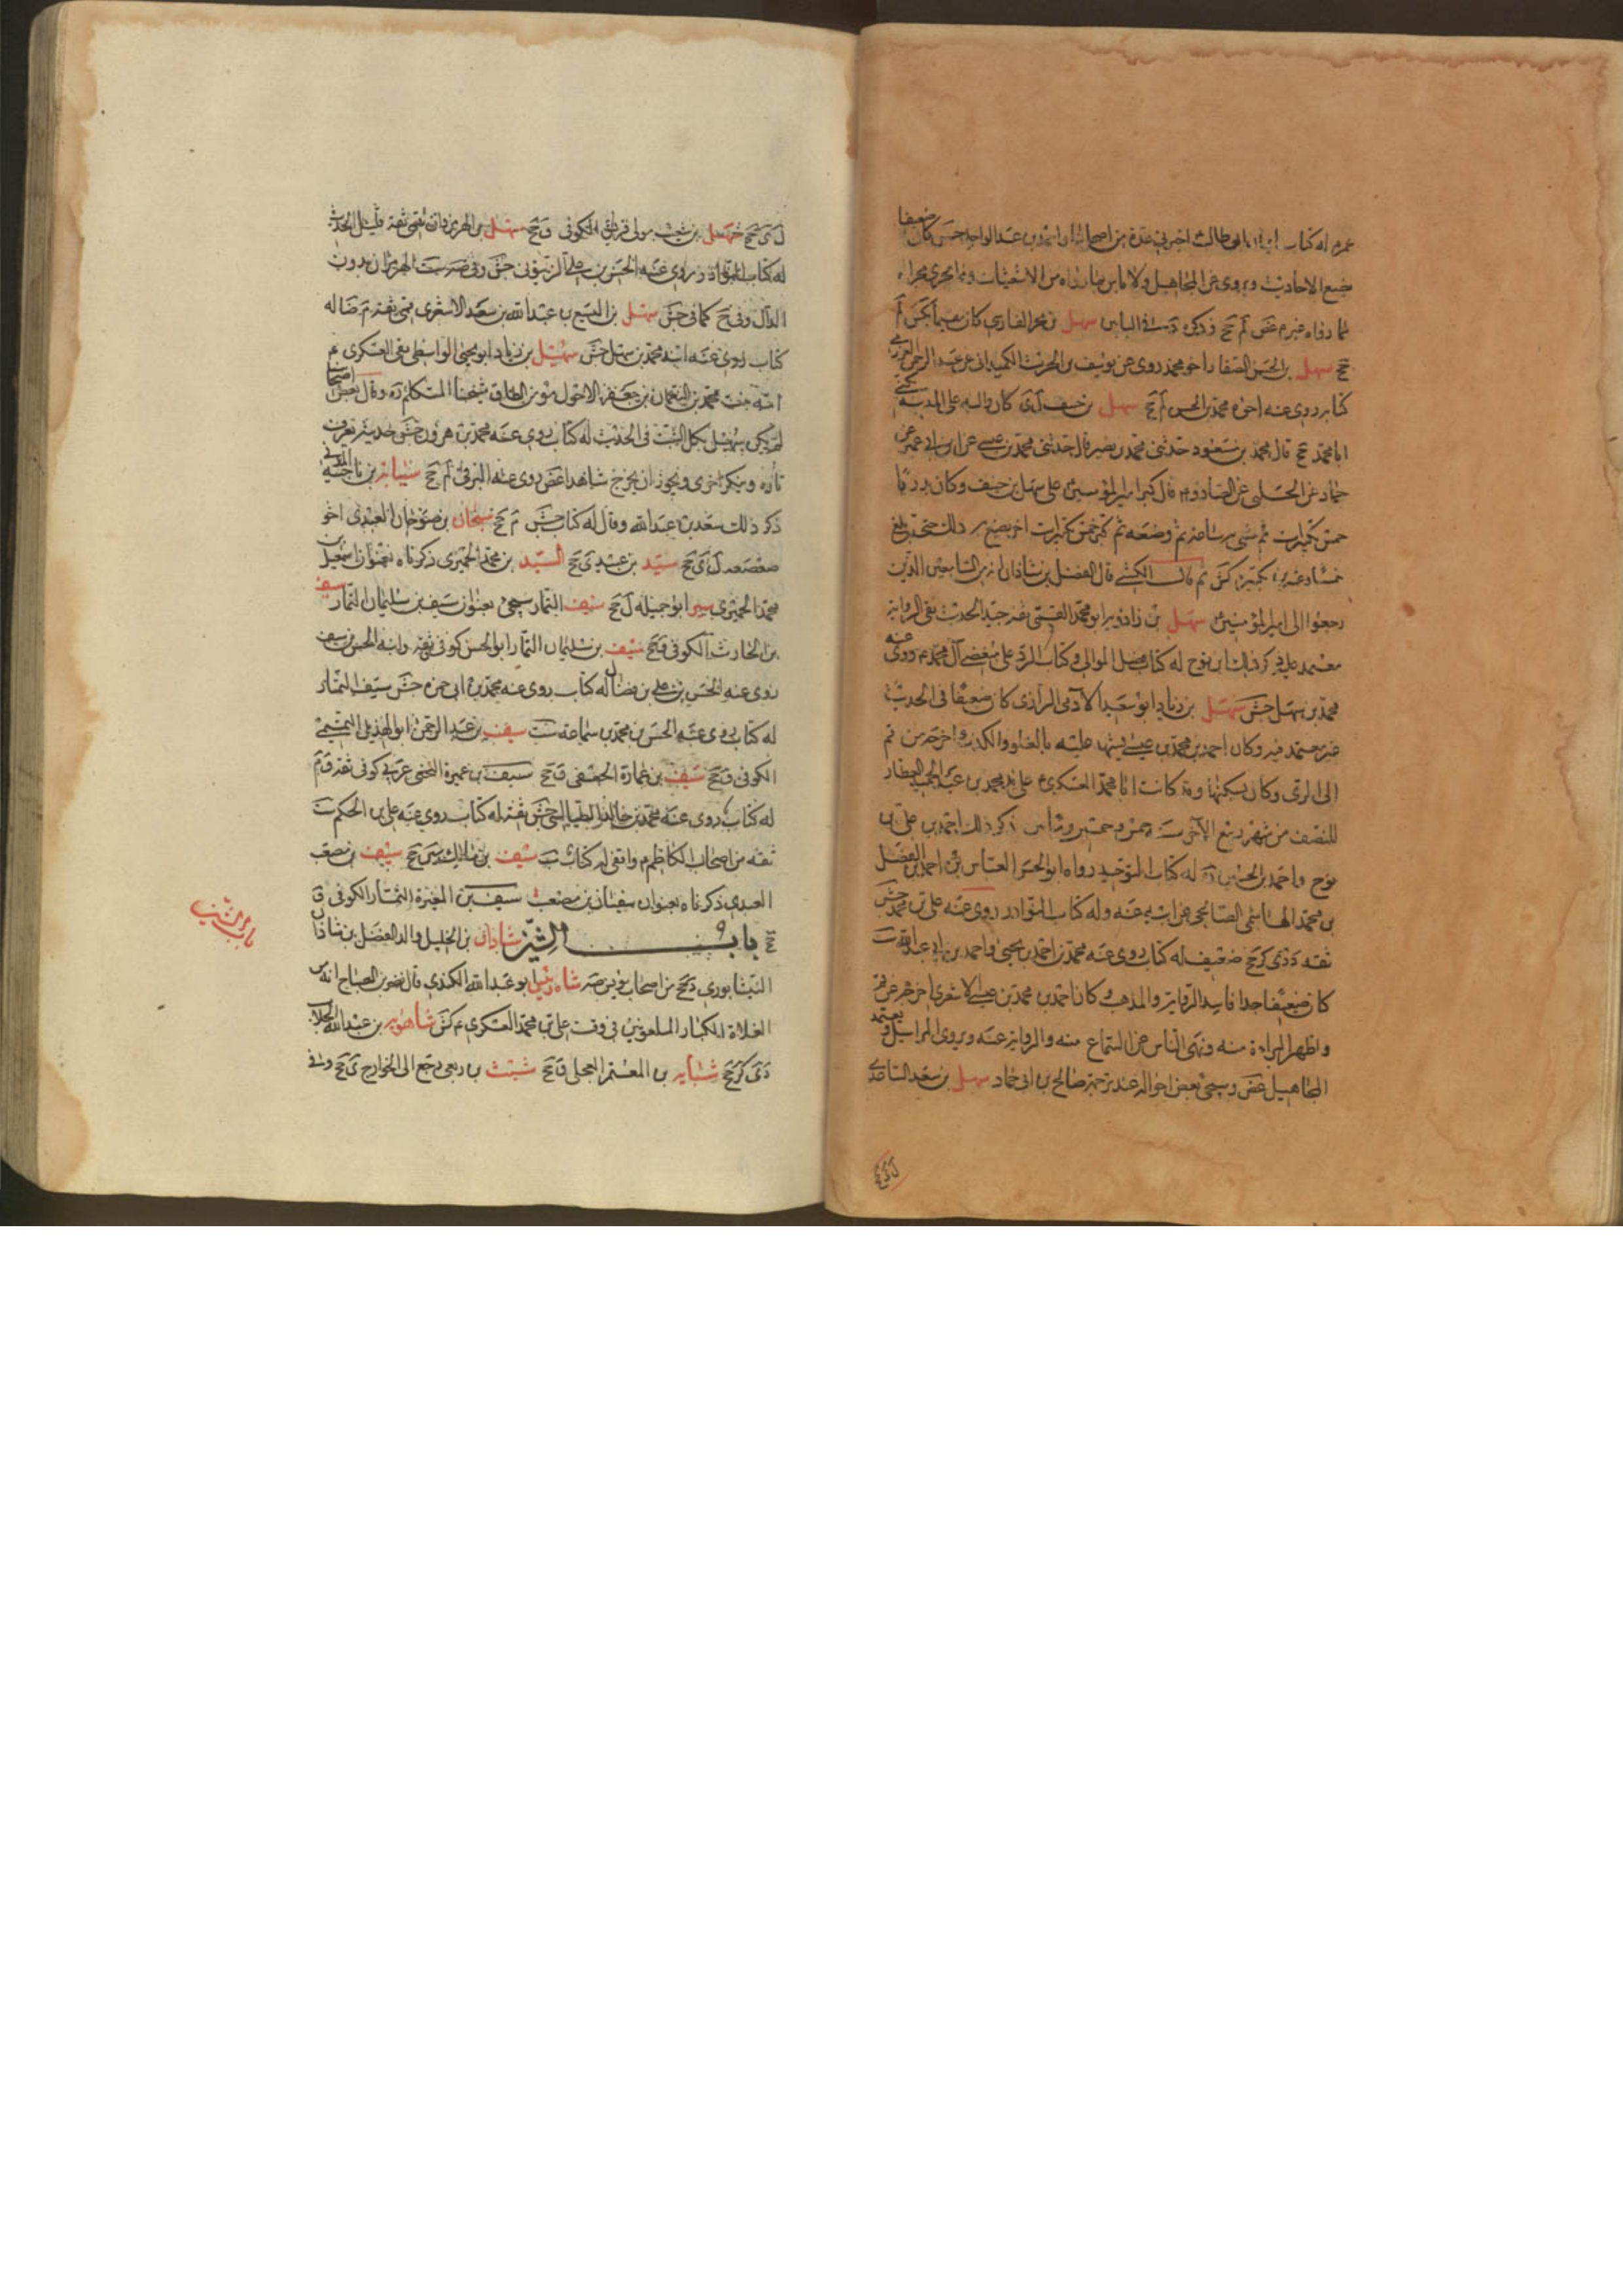 عمره له كتاب ابى طالب اخبرنى عدة من اصحابنا عبد الواحد حبس كان ضعيفا
جميع الاحاديث ويروى عن المجاهيل ولا باس بما رواه من الاشعثيات وما يجرى مجراه
مما رواه غيره غض
سهل بن الحسن الصفار اخو محمد روى عن يوسف بن الحرث الكميدانى عن عبد الرحمن العرزمى
كتابه روى عنه اخوه محمد بن الحسن لم جخ سهل بن حنيف ل ى كان واليه على المدينة يكنى
ابا محمد جخ قال محمد بن مسعود حدثنى محمد بن نصير قال حدثنى محمد بن عيسى عن ابن ابى عمير عن
حماد عن الحلبى عن الصادق قال كبر امير المؤمنين على سهل بن حنيف وكان بدريا
خمس تكبيرات ثم مشى ساعة ثم وضعه ثم كبر خمس تكبيرات اخر يصنع ذلك حتى بلغ
خمسا وعشرين تكبيرة كش ثم قال الكشى قال الفضل بن شاذان انه من السابقين الذين
رجعوا الى امير المؤمنين سهل بن زادويه ابو محمد القمى ثقة جيد الحديث نقى الرواية
معتمد عليه ذكر ذلك ابن نوح له كتاب فضل الموالى وكتاب الرد على مبغضى آل محمد روى عنه
محمد بن سهل جش سهل بن زياد ابو سعيد الآدمى الرازى كان ضعيفا فى الحديث
غير معتمد فيه وكان احمد بن محمد بن عيسى يشهد عليه بالغلو والكذب واخرجه من قم
الى الرى وكان يسكنها وقد كاتب ابا محمد العسكرى على يد محمد بن عبد الحميد العطار
للنصف من شهر ربيع الآخر سنة خمس وخمسين ومائتين ذكر ذلك احمد بن على بن
نوح واحمد بن الحسين له كتاب التوحيد رواه ابو الحسن العباس بن احمد بن الفضل
بن محمد الهاشمى الصالحى عن ابيه عنه وله كتاب النوادر روى عنه على بن محمد جش
ثقة دى كر جخ ضعيف له كتاب روى عنه محمد بن احمد بن يحيى واحمد بن ابى عبد الله ست
كان ضعيفا جدا فاسد الرواية والمذهب وكان احمد بن محمد بن عيسى الاشعرى اخرجه عن قم
واظهر البراءة منه ونهى الناس عن السماع منه والرواية عنه ويروى المراسيل ويعتمد
المجاهيل غض وسيجئ بعض احواله عند ترجمة صالح بن ابى حماد سهل بن سعد الساعدى
ل ى جخ
ل ى جخ سهل بن شعيب مولى قريش الكوفى ق جخ سهل بن الهرمزدان قمى ثقة قليل الحديث
له كتاب النوادر روى عنه الحسن بن على الزيتونى جش وفى ست الهرمزان بدون
الدال وفى جخ كما فى جش سهل بن اليسع بن عبد الله بن سعد الاشعرى قمى ثقة م ضا له
كتاب روى عنه ابنه محمد بن سهل جش سهيل بن زياد ابو يحيى الواسطى لقى العسكرى
امه بنت محمد بن النعمان بن جعفر الاحول مؤمن الطاق شيخنا المتكلم ره وقال بعض اصحابنا
لم يكن سهيل بكل الثبت فى الحديث له كتاب روى عنه محمد بن هرون جش حديثه نعرفه
تارة وينكر اخرى ويجوز ان يخرج شاهدا غض روى عنه البرقى لم جخ سيابة بن ناجية المدنى
ذكر ذلك سعد بن عبد الله وقال له كتاب جش م جخ سيحان بن صوحان العبدى اخو
صعصعة ل ى جخ سيد بن عبيد ى جخ السيد بن محمد الحميرى ذكرناه بعنوان اسمعيل بن
محمد الحميرى سير ابو جميله ل جخ سيف التمار سيجئ بعنوان سيف بن سليمان التمار سيف
بن الحارث الكوفى ق جخ سيف بن سليمان التمار ابو الحسن كوفى ثقة وابنه الحسن بن سيف
روى عنه الحسن بن على بن فضال له كتاب روى عنه محمد بن ابى حمزه جش سيف التمار
له كتاب روى عنه الحسن بن محمد بن سماعة ست سيف بن عبد الرحمن ابو الهذيل التميمى
الكوفى ق جخ سيف بن عمارة الجعفى ق جخ سيف بن عميرة النخعى عربى كوفى ثقة ق م
له كتاب روى عنه محمد بن خالد الطيالسى جش ثقة له كتاب روى عنه على بن الحكم ست
ثقة من اصحاب الكاظم واقفى له كتاب ب سيف بن مالك ى جخ سيف بن مصعب
العبدى ذكرناه بعنوان سفيان بن مصعب سيف بن المغيرة التمار الكوفى ق
جخ باب الشين شاذان بن الخليل والد الفضل بن شاذان
باب الشين
النيشابورى د جخ من اصحاب يونس شاه رئيس ابو عبد الله الكندى قال نصر بن الصباح انه من
الغلاة الكبار الملعونين فى وقت على بن محمد العسكرى كش شاهويه بن عبد الله الجلاب
دى كر جخ شبابه بن المعتمر العجلى ق جخ شبث بن ربعى رجع الى الخوارج ى جخ